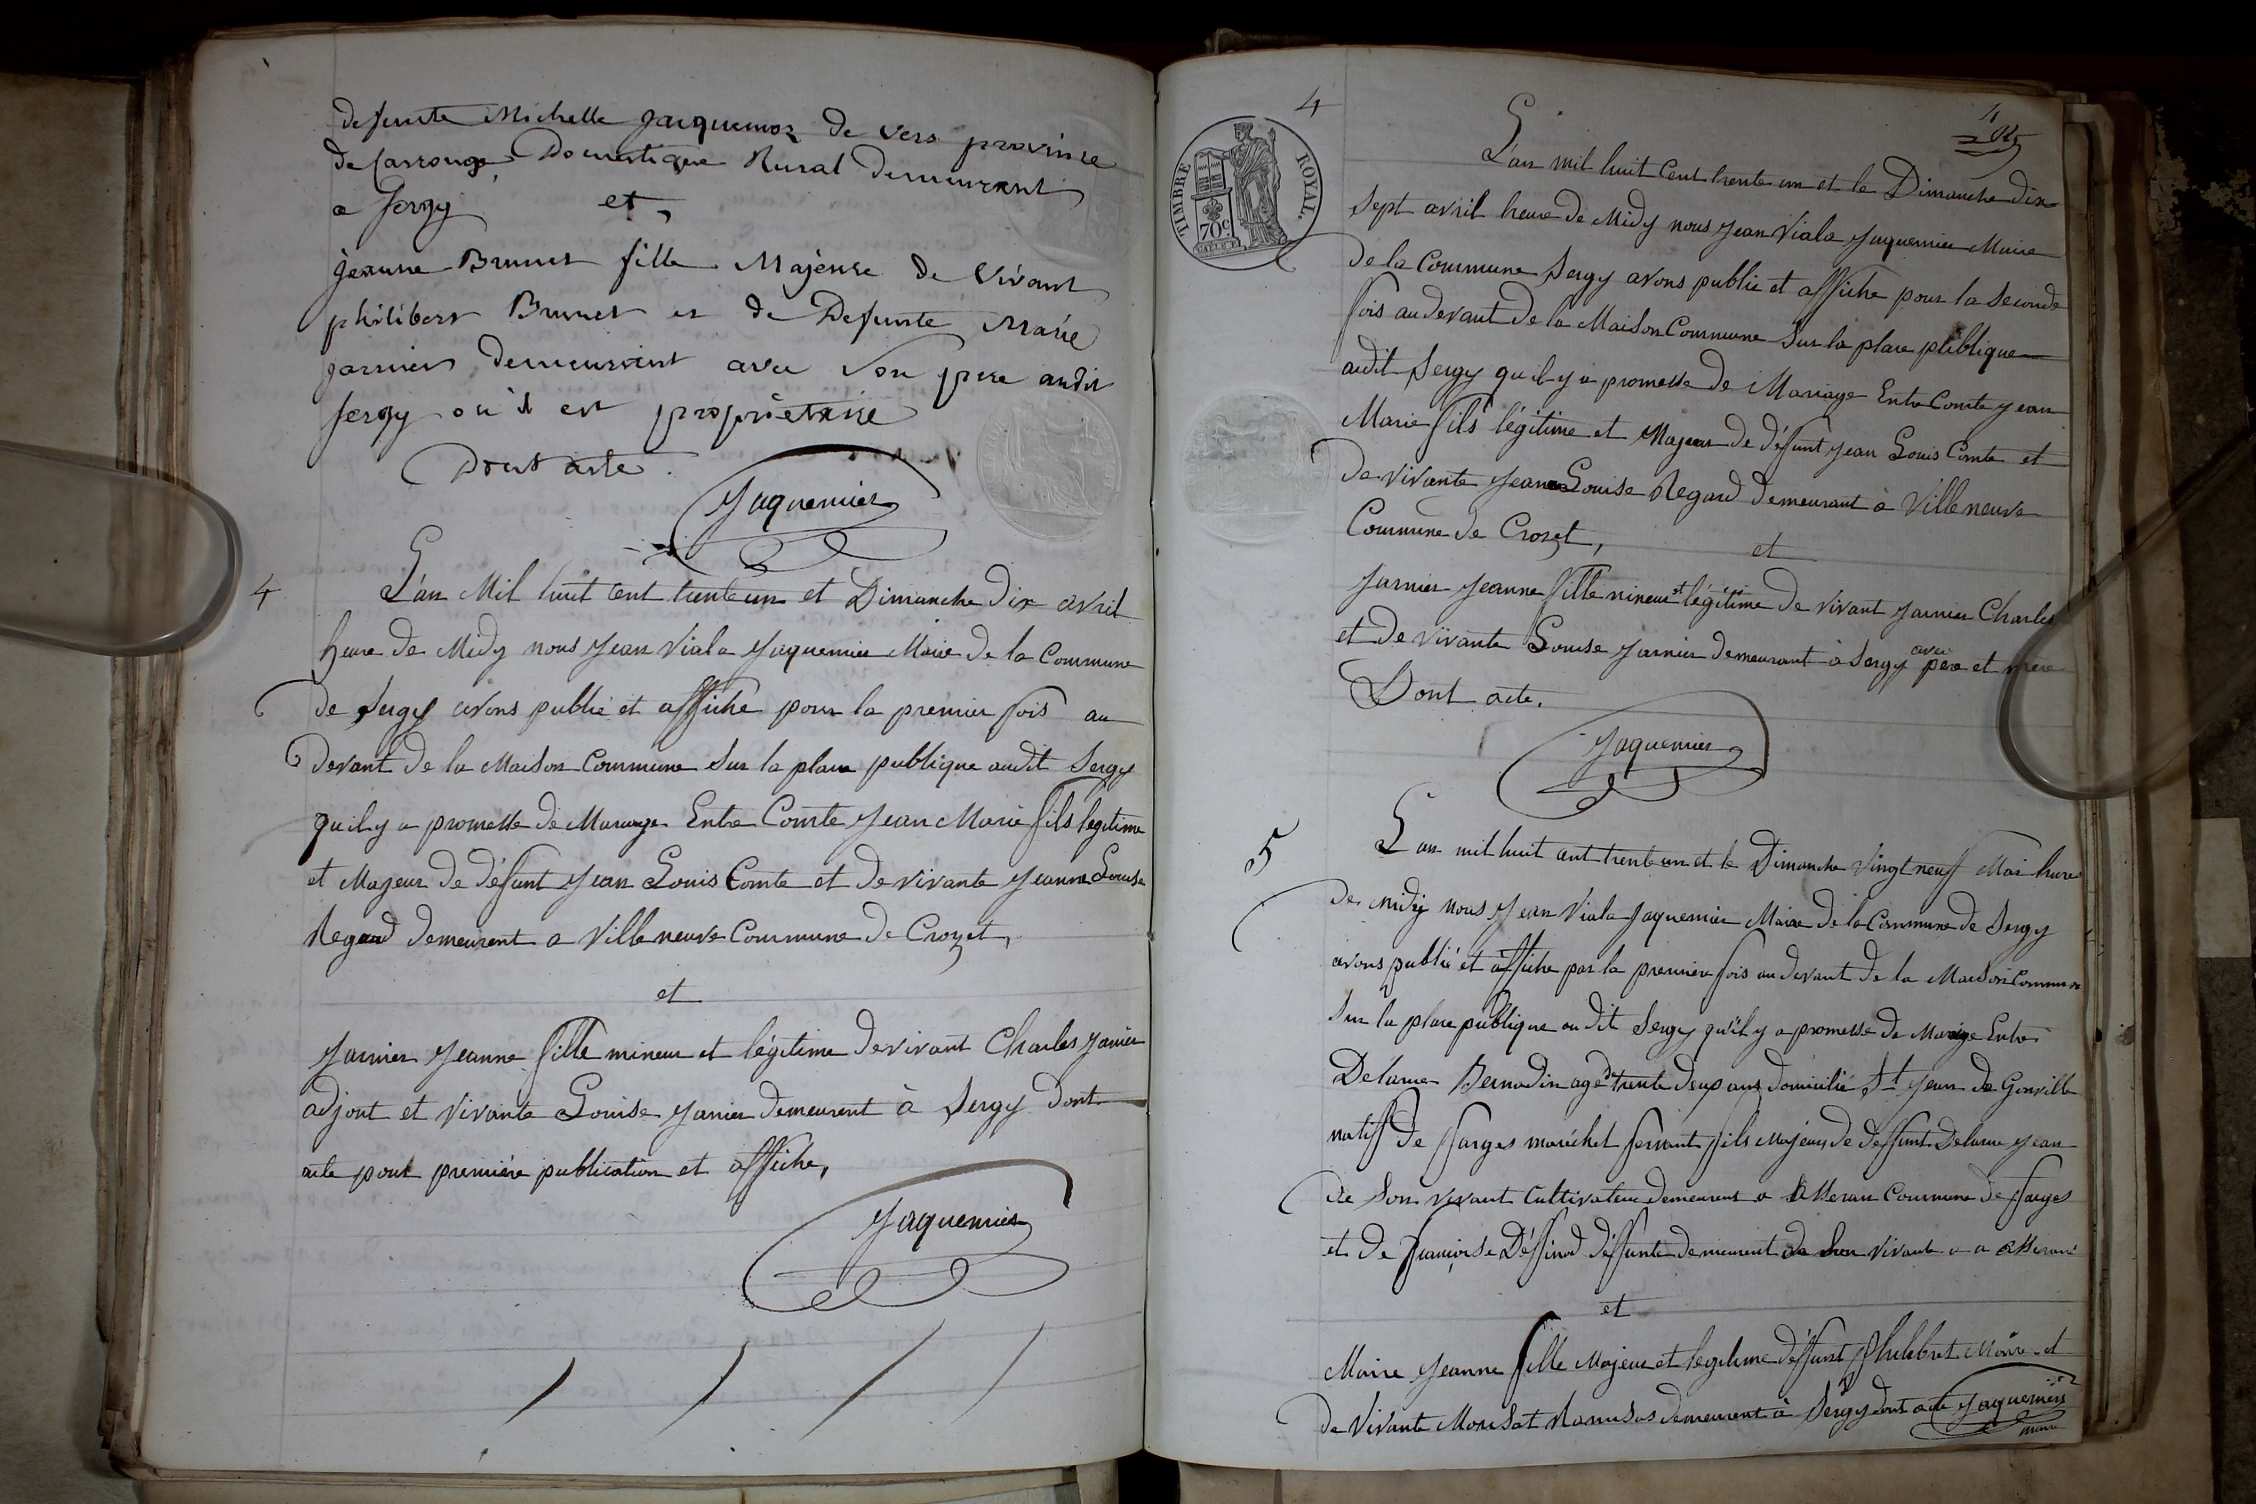 defunte Michelle Jacquemoz de vers province
de Carrouge, Domestique Rural demeurant
a Sergy et
jeanne Brunet fille Majeure de Vivant
philibert Brunet et de Defunte Marie
jarnier demeurant avec son pere audit
Sergy où il est propriétaire
Dont acte.
Jaquemier
4
L'an Mil huit cent trente un et Dimanche dix avril
heure de Midy nous Jean Viala Jaquemier Maire de la Commune
de Sergy avons publié et affiche pour la premier fois au
devant de la Maison Commune sur la place publique audit Sergy
qu'il y a promesse de Mariage Entre Comte Jean Marie fils legitime
et Majeur de défunt Jean Louis Comte et de vivante Jeanne Louise
Regard demeurent a Villeneuve Commune de Crozet,
et
Jarnier Jeanne fille mineur et légitime de vivant Charles Janier
adjout et vivante Louise Janier demeurent à Sergy dont
acte pour premiére publication et affiche,
Jaquemier
4
4
TIMBRE ROYAL.
70c
L'an mil huit Cent trente un et le Dimanche dix
sept avril heure de Midy nous Jean Viala Jaquemier Maire
de la Commune Sergy avons publié et affiche pour la seconde
fois au devant de la Maison Commune Sur la place publique
audit Sergy qu'il y a promesse de Mariage Entre Comte Jean
Marie fils légitime et Majeur de défunt Jean Louis Comte et
de vivante Jeanne Louise Regard demeurant à Villeneuve
Commune de Crozet, et
Jarnier Jeanne fille mineur et légitime de vivant Jarnier Charles
et de vivante Louise Jarnier demeurant à Sergy avec père et mere
Dont acte.
Jaquemier
5
L'an mil huit cent trente un et le Dimanche vingt neuf Mai heure
de midy nous Jean Viala Jaquemier Maire de la Commune de Sergy
avons publié et affiche par la premiere fois au devant de la Maison Commune
Sur la place publique au dit Sergy qu'il y a promesse de Mariage Entre
Delarue Bernadin agé de trente deux ans domicilié St Jean de Gonville
natif de farges maréchet ferrant fils Majeur de deffunt Delarue Jean
de Son vivant Cultivateur demeurent a Asseran Commune de farges
et de françoise déffunte demeurent de Son vivant a Asserans
et
Maire Jeanne fille Majeur et legitime déffunt Philibert Maire et
de Vivante demeurent à Sergy dont acte Jaquemier
maire